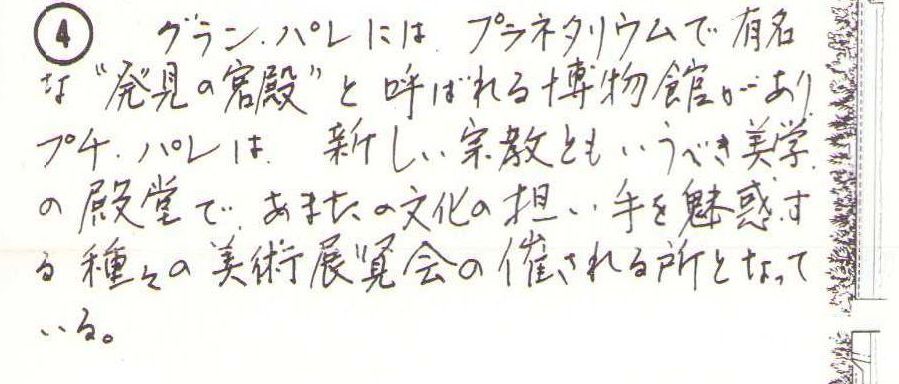 ④ グラン.パレには.プラネタリウムで有名
な"発見の宮殿"と呼ばれる博物館があり.
プチ.パレは.新しい宗教ともいうべき美学
の殿堂で.あまたの文化の担い手を魅惑す
る種々の美術展覧会の催される所となって
いる。